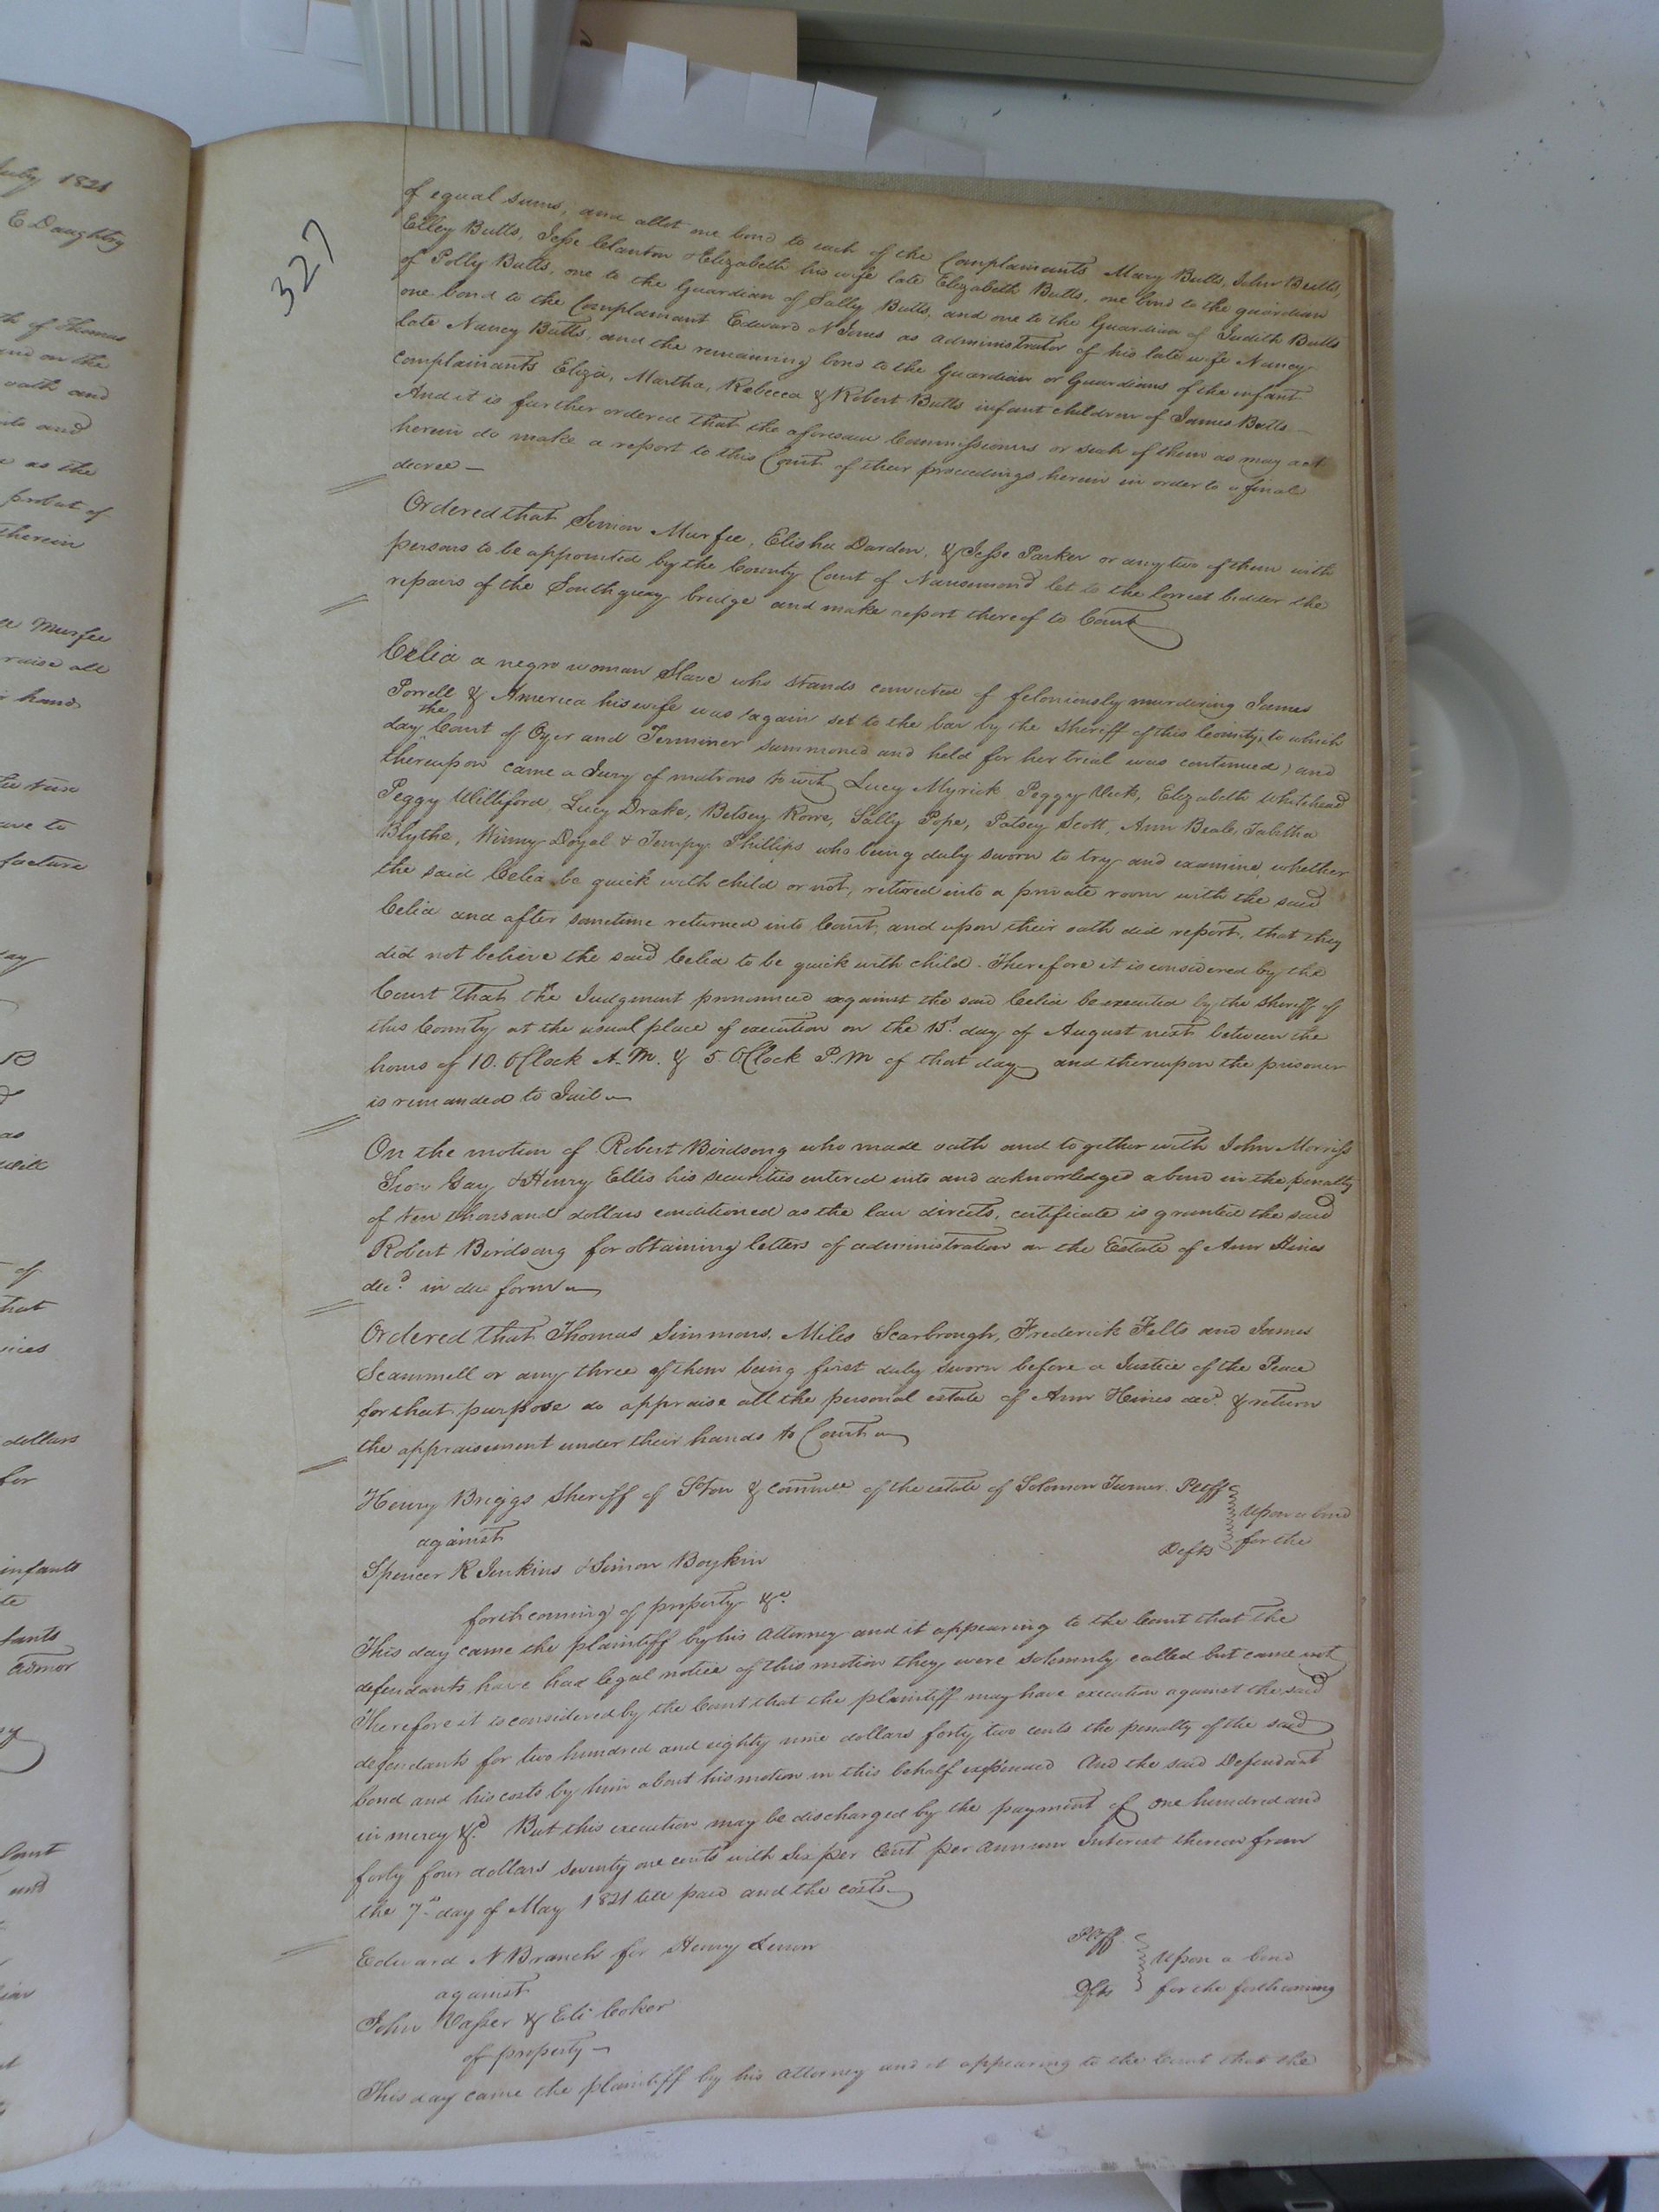 July 1821
E Daughtry
th of Thomas
and on the
oath and
as the
probat of
therein
Murfee
raise all
hand
ave to
facture
of
that
dollars
for
infants
admor
327
of equal sums, and allot one bond to each of the Complainants Mary Butts, John Butts,
Elley Butts, Jesse Clanton & Elizabeth his wife late Elizabeth Butts, one bond to the guardian
of Polly Butts, one to the Guardian of Sally Butts, and one to the Guardian of Judith Butts
one bond to the Complainant Edward N Jones as administrator of his late wife Nancy
late Nancy Butts, and the remaining bond to the Guardian or Guardians of the infant
complainants Eliza, Martha, Rebecca & Robert Butts infant children of James Butts —
And it is further ordered that the aforesaid Commissioners or such of them as may act
herein do make a report to this Court of their proceedings herein in order to a final
decree —
Ordered that Simon Murfee, Elisha Darden, & Jesse Parker or any two of them with
persons to be appointed by the County Court of Nansemond let to the lowest bidder the
repairs of the Southquay bridge and make report thereof to Court
Celia a negro woman Slave who stands convicted of feloniously murdering James
Powell & America his wife was again set to the bar by the Sheriff of this County, (to which
day the Court of Oyer and Terminer summoned and held for her trial was continued) and
thereupon came a Jury of matrons to wit, Lucy Myrick, Peggy Vick, Elizabeth Whitehead
Peggy Williford, Lucy Drake, Betsey Rowe, Sally Pope, Patsey Scott, Ann Beale, Tabitha
Blythe, Winny Doyal & Tempy Phillips who being duly sworn to try and examine, whether
the said Celia be quick with child or not, retired into a private room with the said
Celia and after sometime returned into Court, and upon their oath did report, that they
did not believe the said Celia to be quick with child. Therefore it is considered by the
Court that the Judgment pronounced against the said Celia be executed by the Sheriff of
this County at the usual place of execution on the day of August next between the
hours of 10. OClock A.M. & 5. OClock P.M of that day and thereupon the prisoner
is remanded to Jail
On the motion of Robert Birdsong who made oath and together with John Morriss
Sion Gay & Henry Ellis his securities entered into and acknowledged a bond in the penalty
of ten thousand dollars conditioned as the law directs, certificate is granted the said
Robert Birdsong for obtaining letters of administration on the Estate of Ann Hines
decd. in due form
Ordered that Thomas Simmons, Miles Scarbrough, Frederick Felts and James
Scammell or any three of them being first duly sworn before a Justice of the Peace
for that purpose do appraise all the personal estate of Ann Hines decd. & return
the appraisement under their hands to Court
Henry Briggs Sheriff of SoHon & Committee of the estate of Solomon Turner. Pltff
against
Upon a bond
Spencer R Jenkins & Simon Boykin Defts for the
forthcoming of property &c.
This day came the plaintiff by his attorney and it appearing to the Court that the
defendants have had legal notice of this motion they were solemnly called but came not
Therefore it is considered by the Court that the plaintiff may have execution against the said
defendants for two hundred and eighty nine dollars forty two cents the penalty of the said
bond and his costs by him about his motion in this behalf expended And the said Defendant
in mercy &c. But this execution may be discharged by the payment of one hundred and
forty four dollars seventy one cents with Six per Cent per annum Interest thereon from
the 7th day of May 1821 till paid and the costs
Edward N Branch for Henry Pltff
against
Upon a bond
John Vasser & Eli Coker Defts for the forthcoming
of property —
This day came the plaintiff by his attorney and it appearing to the Court that the